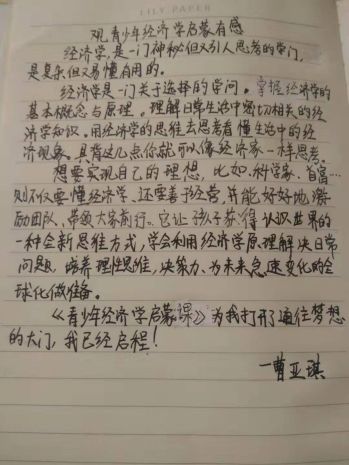 LILY PAPER
观青少年经济学启蒙有感
经济学,是一门神秘但又引人思考的学门,
是复杂但又易懂有用的。
经济学是一门关于选择的学问。掌握经济学的
基本概念与原理。理解日常生活中密切相关的经
济学知识。用经济学的思维去思考看懂生活中的经
济现象。具背这几点你就可以像经济家一样思考。
想要实现自己的理想,比如、科学家、首富…
则不仅要懂经济学、还要善于经营,并能好好地激
励团队、带领大家前行。它让孩子获得认识世界的
一种全新思维方式,学会利用经济学原理解决日常
问题,培养理性思维,决策力、为未来急速变化的全
球化做准备。
《青少年经济学启蒙课》为我打开了通往梦想
的大门,我已经启程!
一曹亚琪